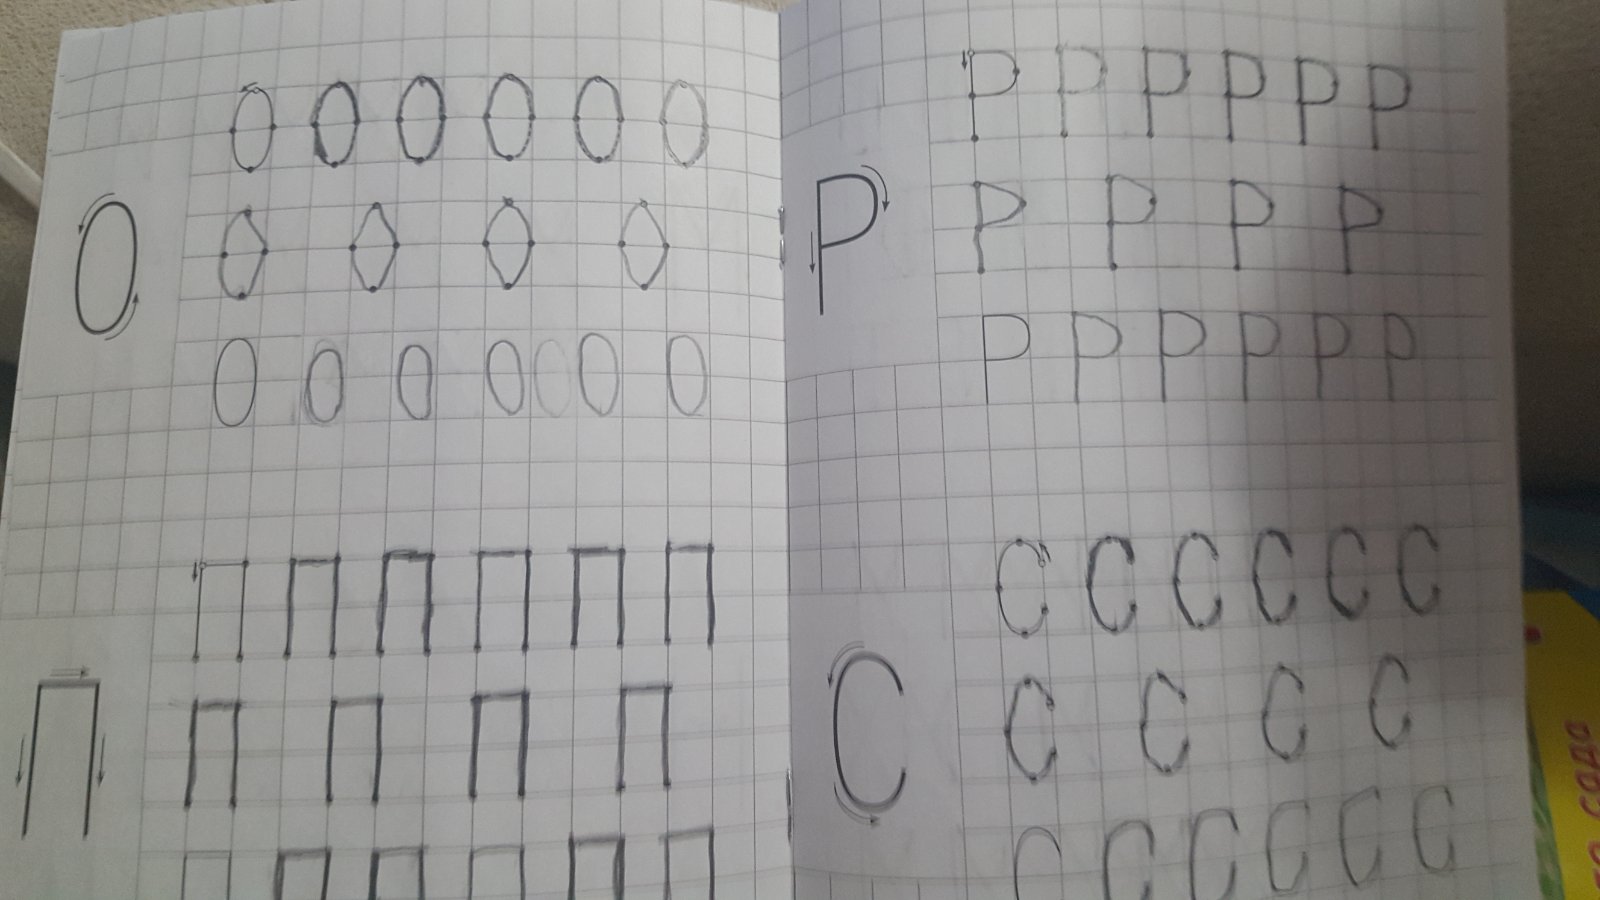 О О О О О О
О
О О О О
О О О О О О О
П П П П П П
П
П П П П
П П П П П П
Р Р Р Р Р Р
Р
Р Р Р Р
Р Р Р Р Р Р
С С С С С С
С
С С С С
С С С С С С
сада